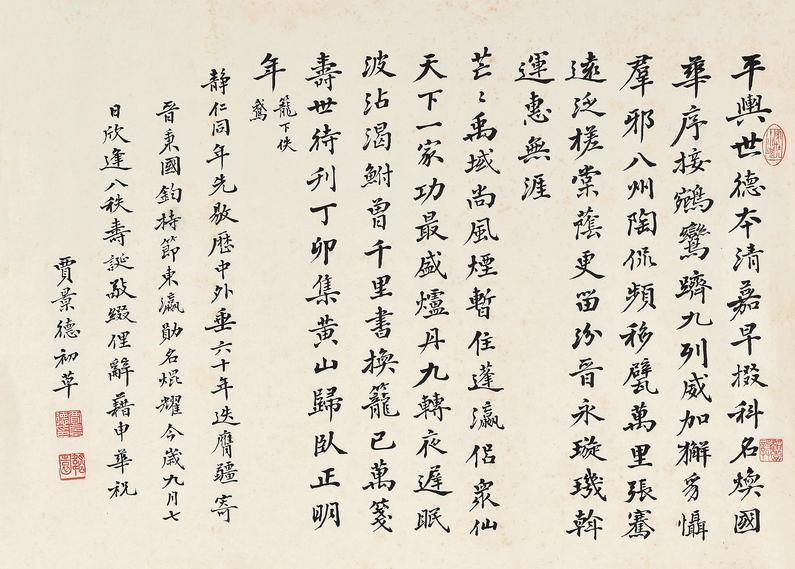 平輿世德本清嘉早掇科名煥國
華序接鵷鸞躋九列威加獬豸懾
羣邪八州陶侃頻移甓萬里張騫
遠泛槎棠蔭更留汾晉永璇璣斡
運惠無涯
芒〻禹域尚風煙暫住蓬瀛侶衆仙
天下一家功最盛爐丹九轉夜遲眠
波沾渴鮒曾千里書換籠已萬箋
壽世待刊丁卯集黃山歸臥正明
年
籠下佚
鵞
靜仁同年先敭歷中外垂六十年迭膺疆寄
晉秉國鈞持節東瀛勛名焜耀今歲九月七
日欣逢八秩壽誕敬綴俚辭藉申華祝
賈景德初草